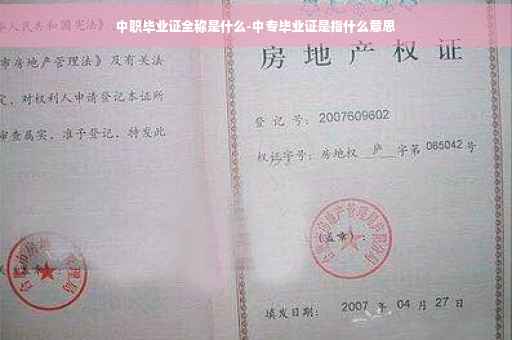 中职毕业证全称是什么-中专毕业证是指什么意思
人民共和国宪法》
市房地产管理法》及有关法
定，对权利人申请登记本证所
审查属实，准予登记，特发此
房地产权证
登记号：2007609602
权证字号：房地权 庐 字第 085042 号
(盖章)：
填发日期：2007 年 04 月 27 日